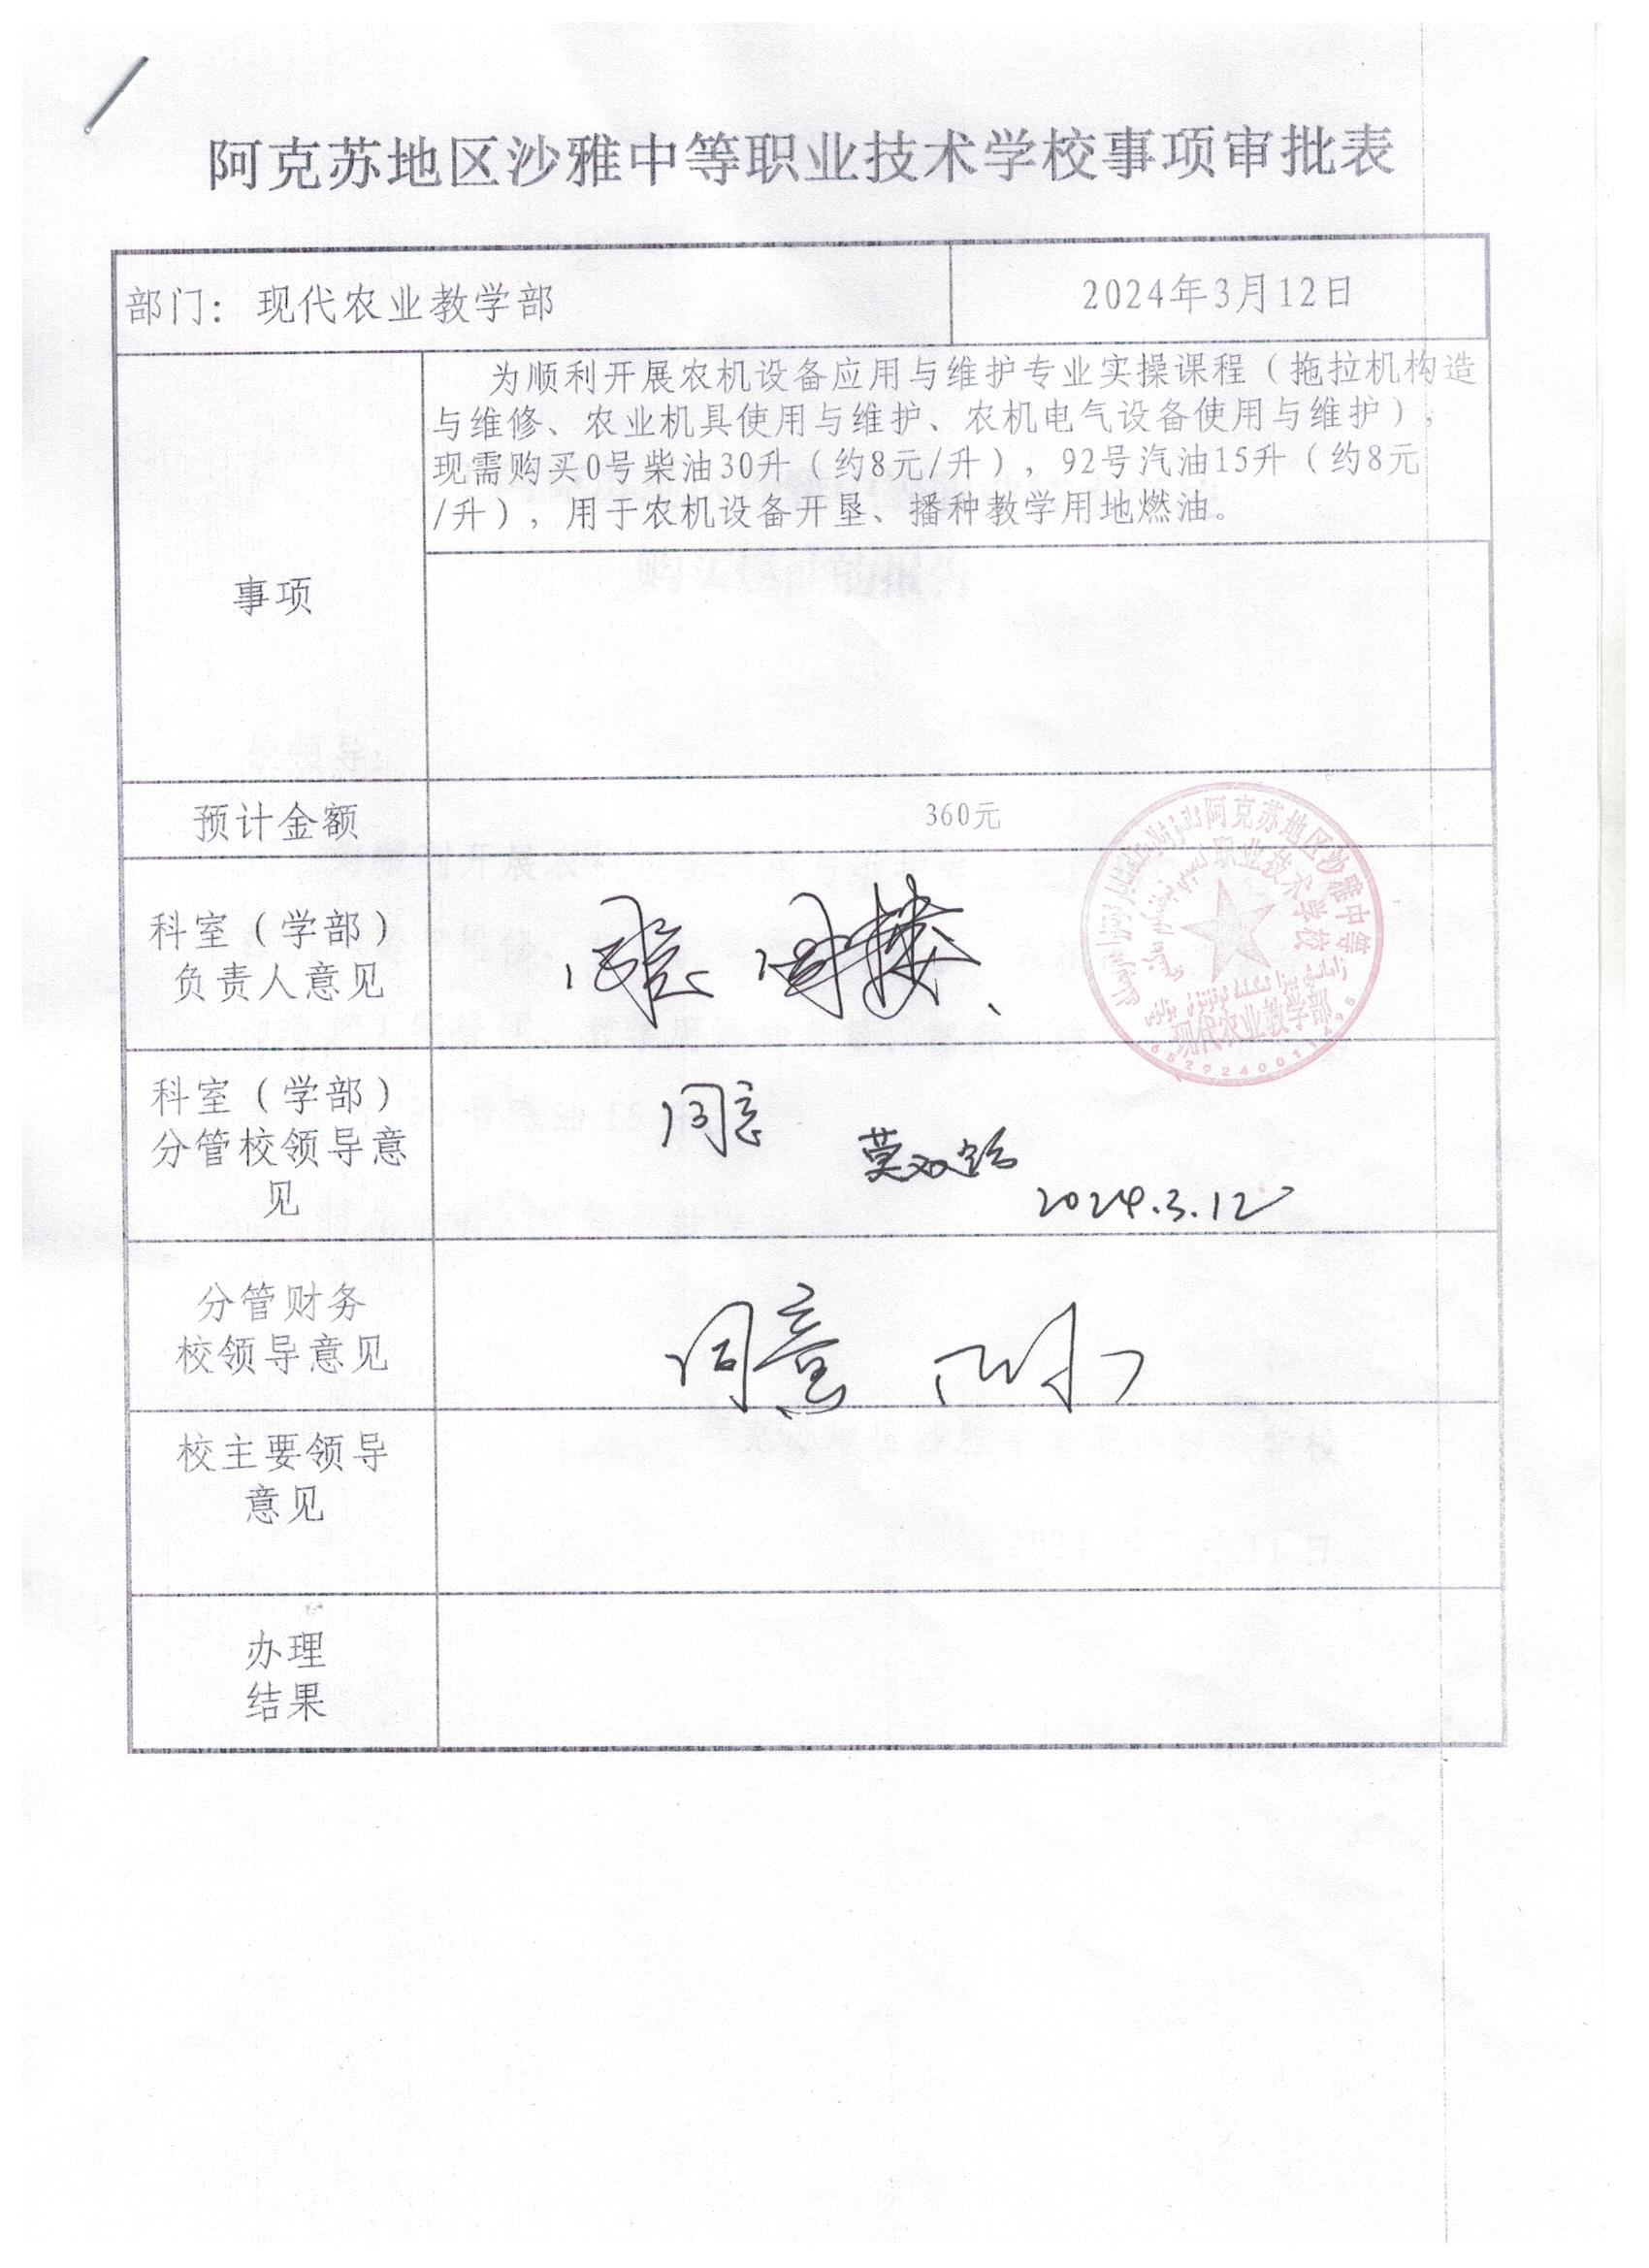 阿克苏地区沙雅中等职业技术学校事项审批表
部门：现代农业教学部
2024年3月12日
为顺利开展农机设备应用与维护专业实操课程（拖拉机构造
与维修、农业机具使用与维护、农机电气设备使用与维护），
现需购买0号柴油30升（约8元/升），92号汽油15升（约8元
/升），用于农机设备开垦、播种教学用地燃油。
事项
预计金额
360元
科室（学部）
负责人意见
同意
阿克苏地区沙雅中等
职业技术学校
现代农业教学部
科室（学部）
分管校领导意
见
同意
2024.3.12
分管财务
校领导意见
同意
校主要领导
意见
办理
结果